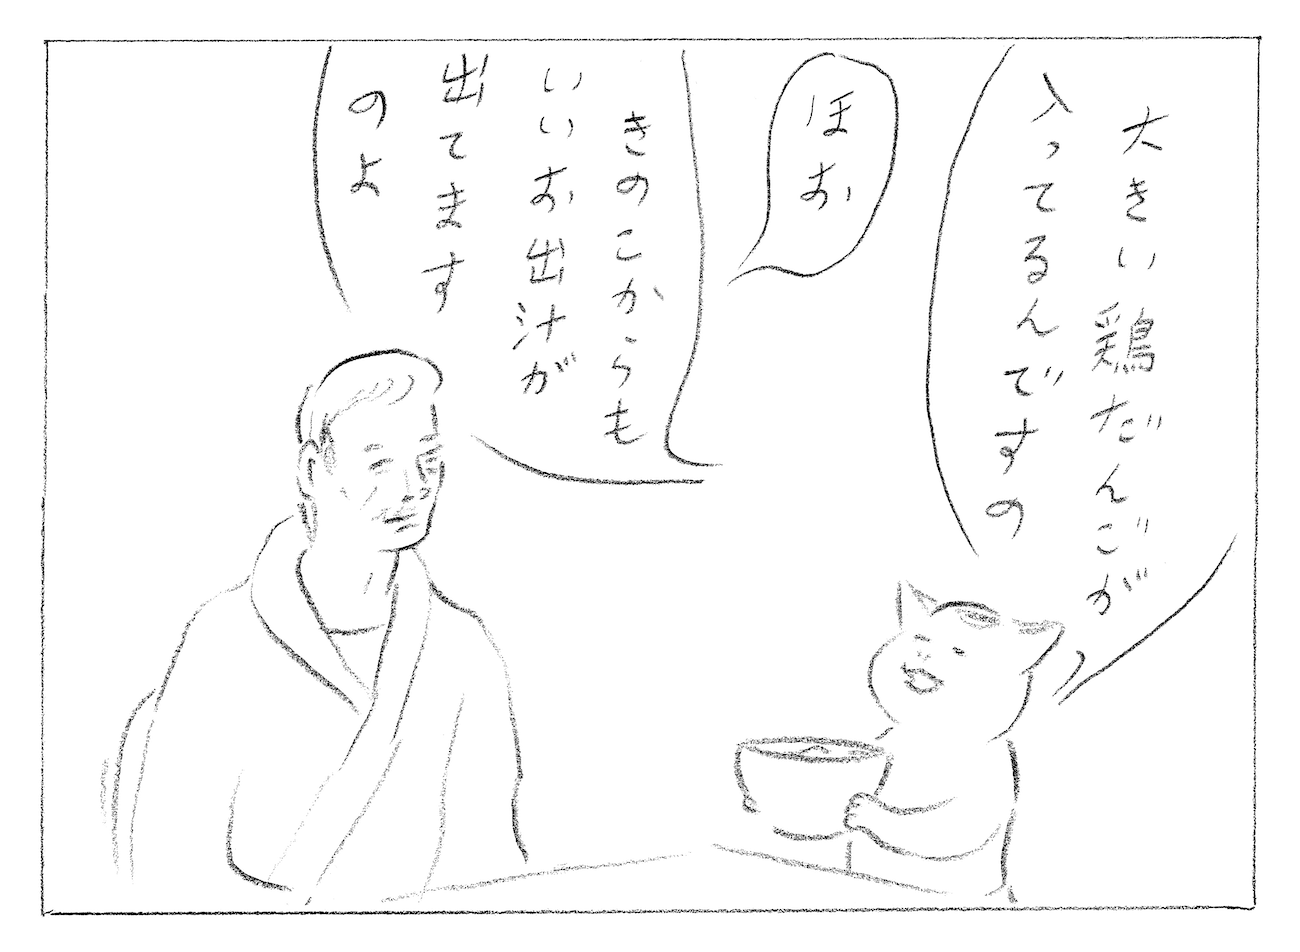 大きい鶏だんごが
入ってるんですの
ほお
きのこからも
いいお出汁が
出てます
のよ